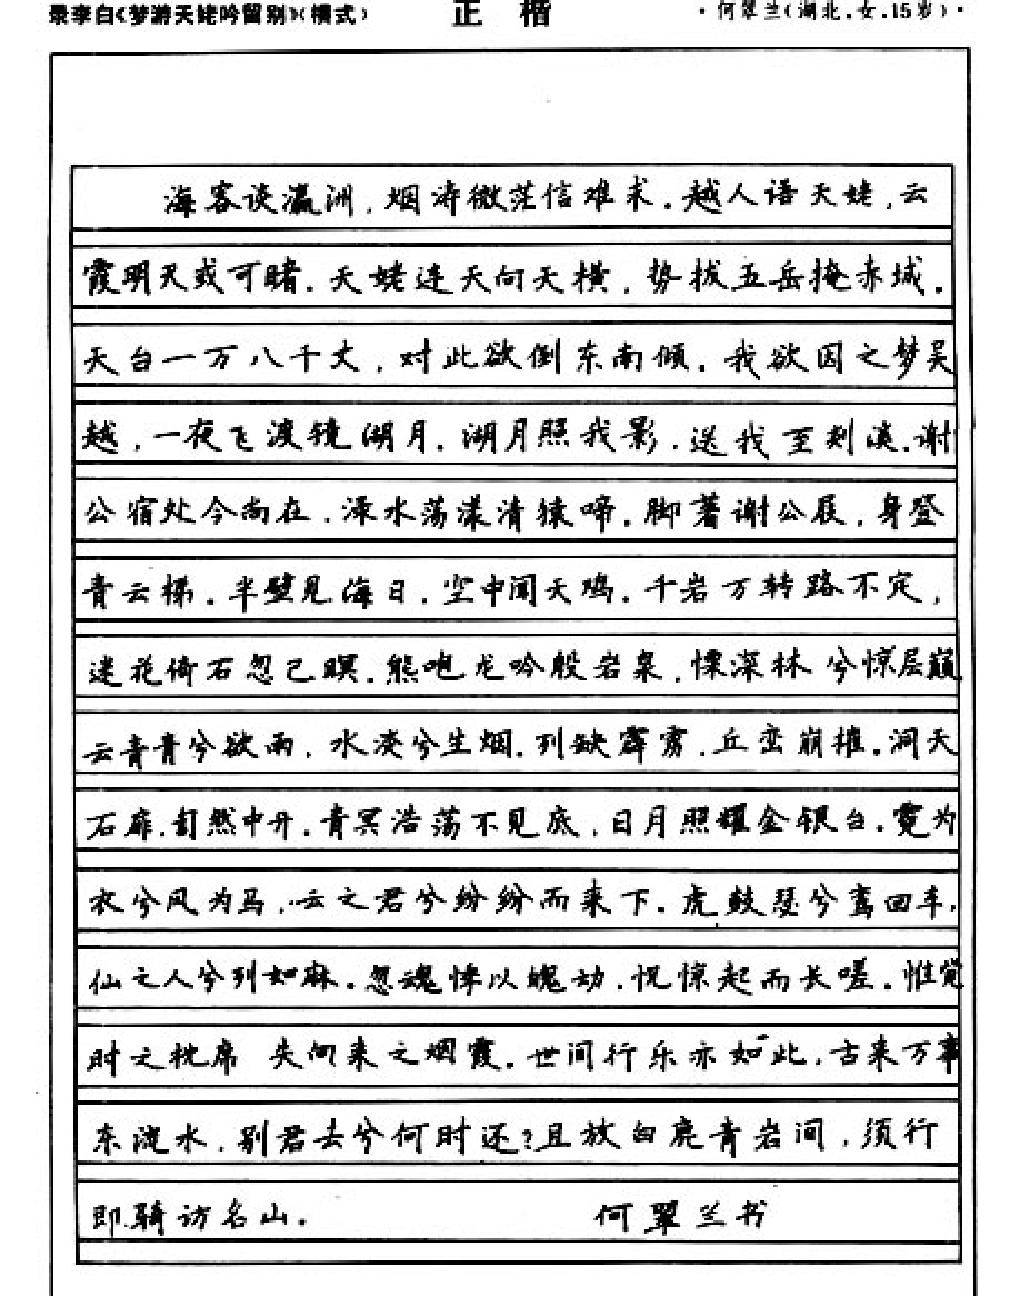 录李白《梦游天姥吟留别》(横式) 正楷 ·何翠兰(湖北.女.15岁)·
海客谈瀛洲,烟涛微茫信难求.越人语天姥,云
霞明灭或可睹.天姥连天向天横,势拔五岳掩赤城.
天台一万八千丈,对此欲倒东南倾.我欲因之梦吴
越,一夜飞渡镜湖月.湖月照我影.送我至剡溪.谢
公宿处今尚在,渌水荡漾清猿啼.脚著谢公屐,身登
青云梯.半壁见海日.空中闻天鸡.千岩万转路不定,
迷花倚石忽已暝.熊咆龙吟殷岩泉,慄深林兮惊层巅
云青青兮欲雨,水淡兮生烟.列缺霹雳,丘峦崩摧.洞天
石扉.訇然中开.青冥浩荡不见底,日月照耀金银台.霓为
衣兮风为马,云之君兮纷纷而来下.虎鼓瑟兮鸾回车.
仙之人兮列如麻.忽魂悸以魄动.恍惊起而长嗟.惟觉
时之枕席 失向来之烟霞.世间行乐亦如此.古来万事
东流水.别君去兮何时还?且放白鹿青岩间,须行
即骑访名山. 何翠兰书